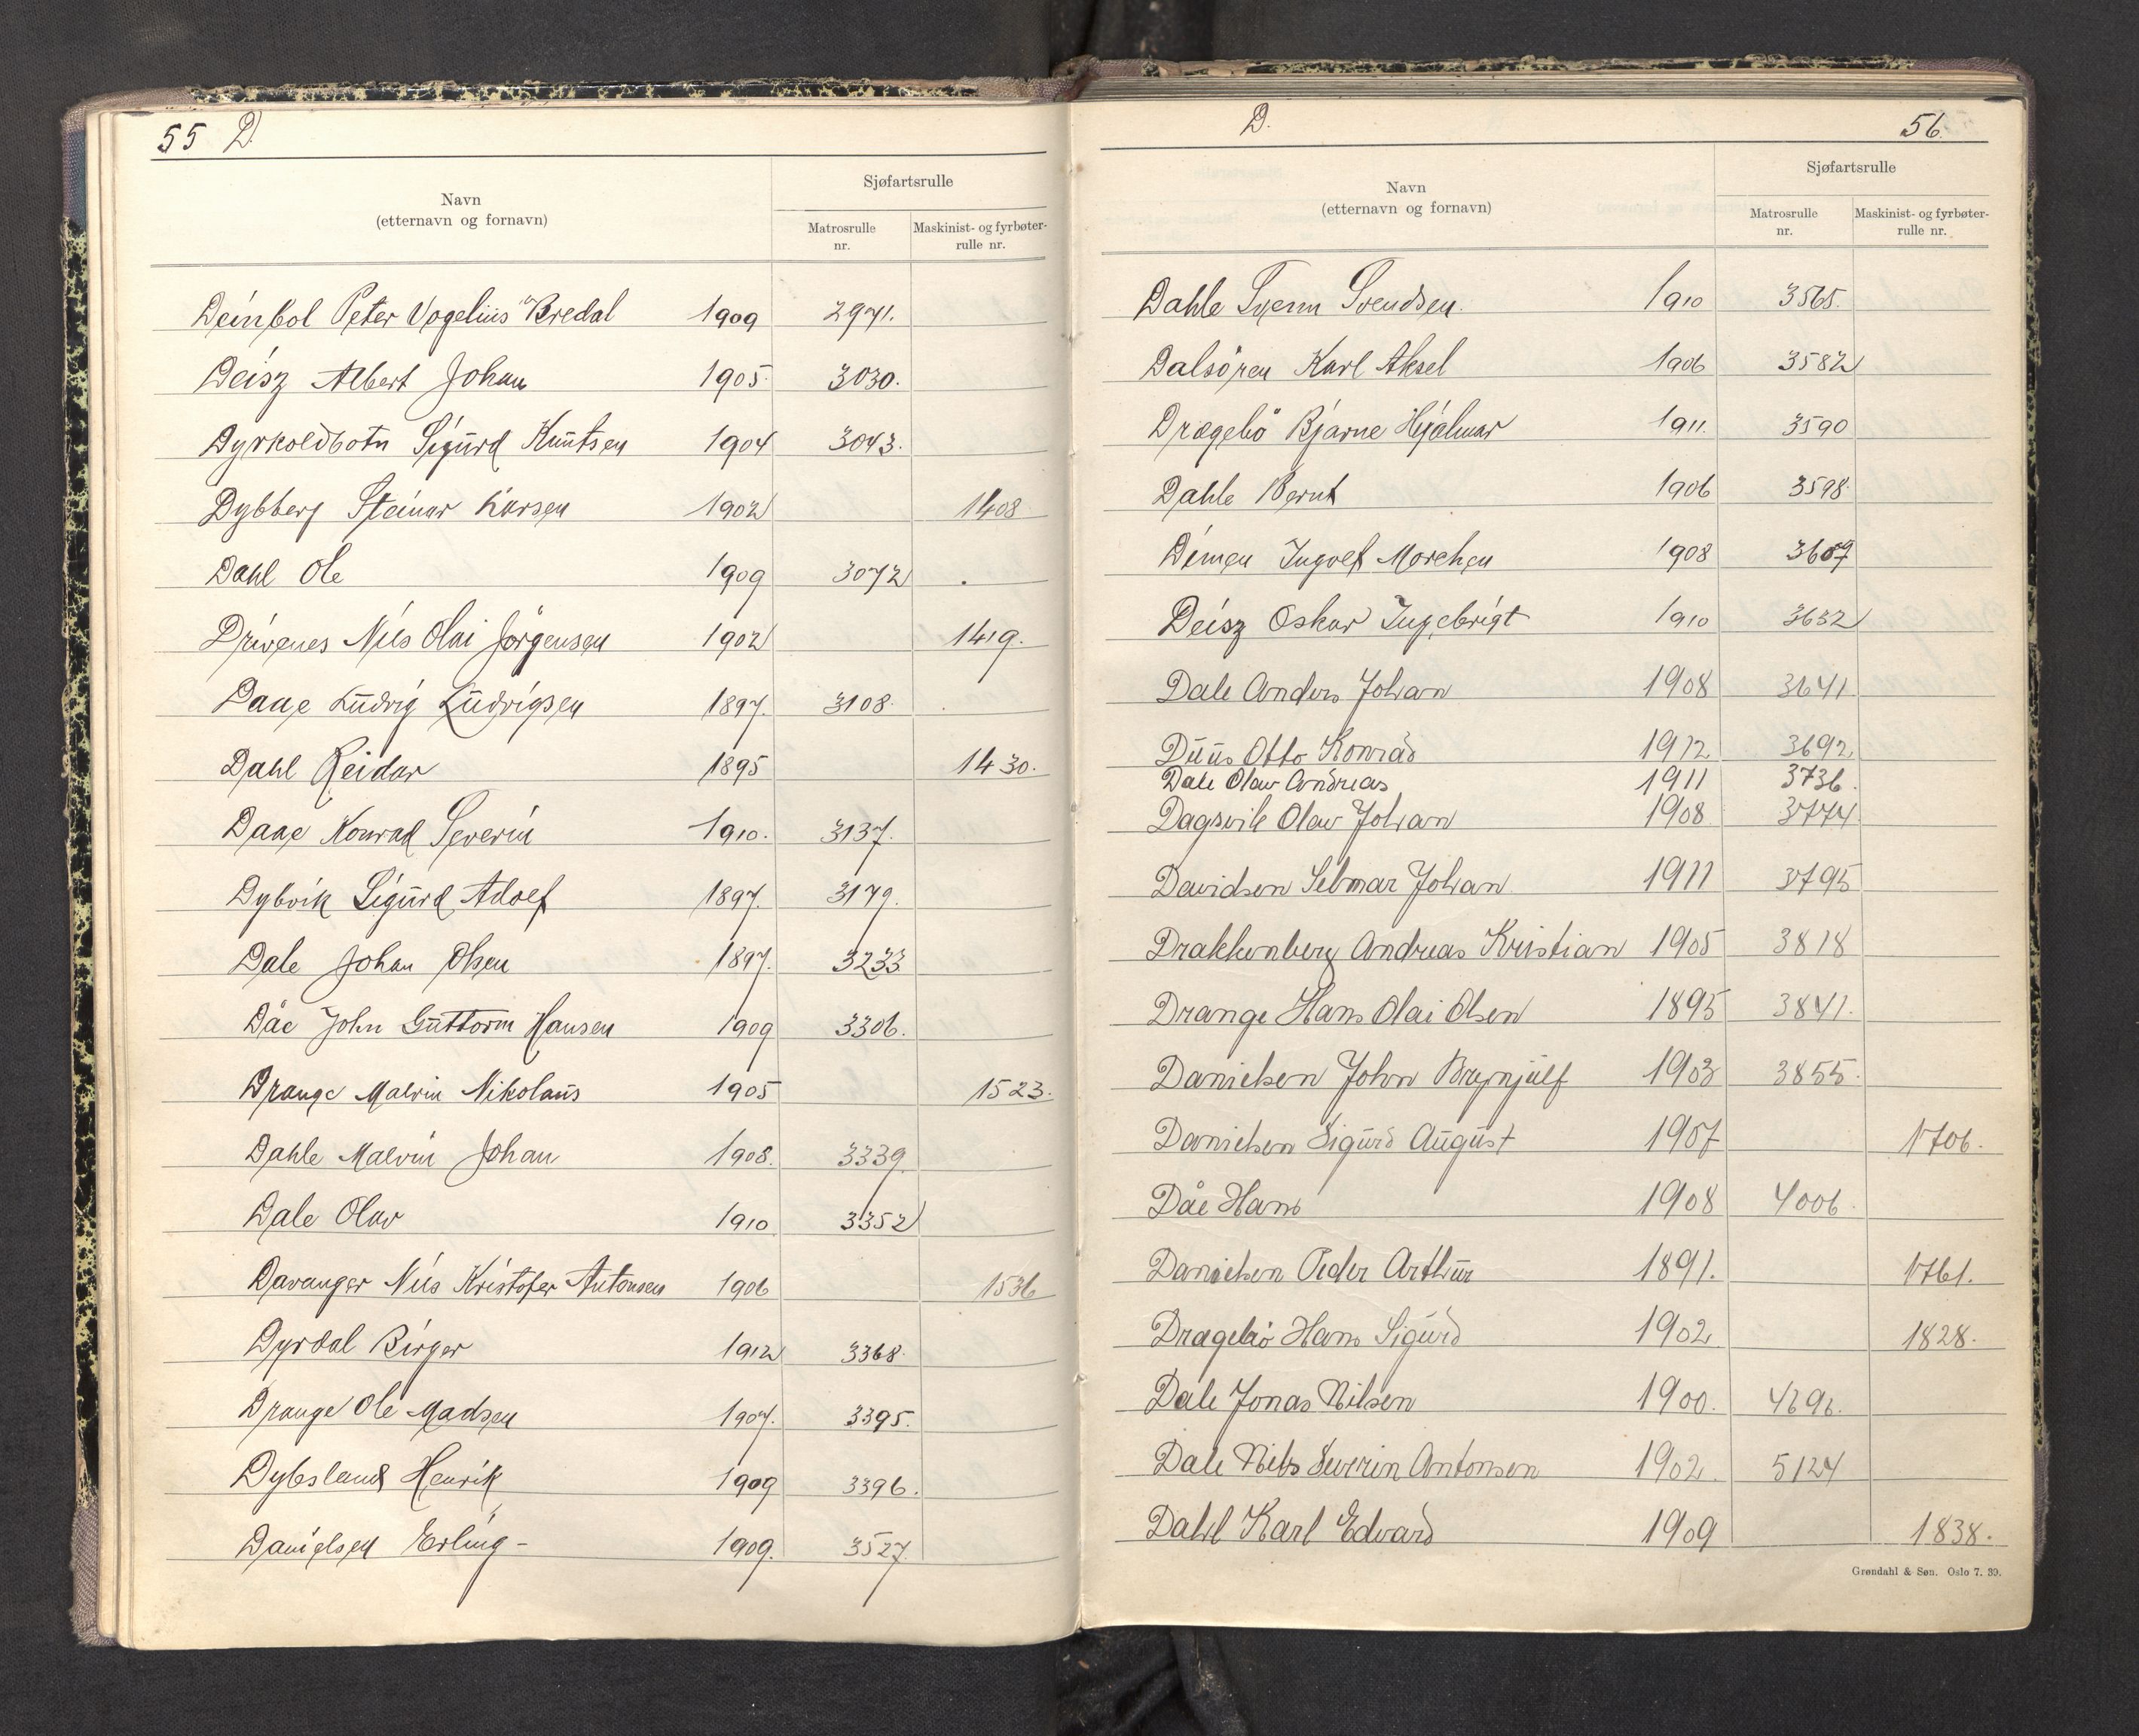 55 D.
Navn
(etternavn og fornavn)
Sjøfartsrulle
Matrosrulle
nr.
Maskinist- og fyrbøter-
rulle nr.
Deinbol Peter Vogelius Bredal 1909 2971.
Deisz Albert Johan 1905. 3030.
Dyrkoldbotn Sigurd Knutsen 1904 3043.
Dybberg Steinar Larsen 1902 1408
Dahl Ole 1909 3072
Drivenes Nils Olai Jörgensen 1902 1419.
Daae Ludvig Ludvigsen 1897. 3108.
Dahl Reidar 1895 1430.
Daae Konrad Severin 1910. 3137.
Dybvik Sigurd Adolf 1897. 3179.
Dale Johan Olsen 1897. 3233
Dåe John Guttorm Hansen 1909 3306.
Drange Malvin Nikolaus 1905 1523.
Dahle Malvin Johan 1908. 3339.
Dale Olav 1910 3352
Davanger Nils Kristofer Antonsen 1906 1536
Dyrdal Birger 1912 3368.
Drange Ole Madsen 1907. 3395.
Dybsland Henrik 1909 3396.
Danielsen Erling - 1909. 3527.
D. 56.
Navn
(etternavn og fornavn)
Sjøfartsrulle
Matrosrulle
nr.
Maskinist- og fyrbøter-
rulle nr.
Dahle Svenn Svendsen. 1910 3565.
Dalsören Karl Aksel 1906 3582
Drægebö Bjarne Hjalmar 1911. 3590
Dahle Bernt 1906 3598.
Dimen Ingolf 1908
Deisz Oskar Ingebrigt 1910 3632
Dale Anders Johan 1908 3641
Duus Otto Konrad 1912 3692.
Dale Olav Andreas 1911 3736.
Dagsvik Olav Johan 1908 3774.
Davidsen Selmar Johan 1911 3795
Drakkenberg Andreas Kristian 1905 3818
Drange Hans Olai Olsen 1895 3841.
Danielsen John Brynjulf 1903 3855.
Danielsen Sigurd August 1907 1706.
Dåe Hans 1908 4006.
Danielsen Peder Arthur 1891. 1761.
Dragebö Hans Sigurd 1902. 1828.
Dale Jonas Nilsen 1900. 4696.
Dale Nils Severin Antonsen 1902. 5124
Dahl Karl Edvard 1909 1838.
Grøndahl & Søn. Oslo 7. 39.